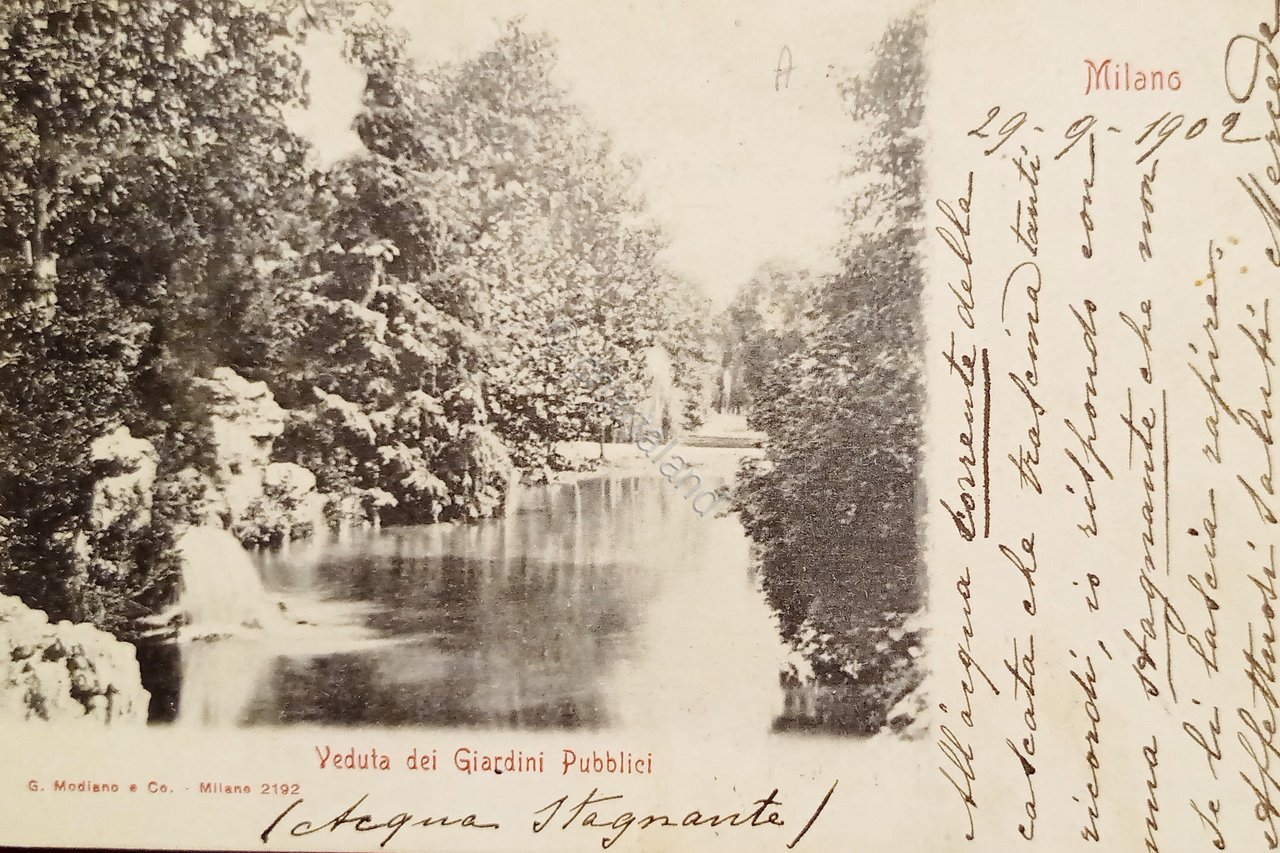 Milano
29-9-1902
All'acqua corrente della
cascata che trascina tanti
ricordi, io rispondo con
una stagnante che non
se li lascia rapire.
Affettuosi saluti Mercede
Veduta dei Giardini Pubblici
G. Modiano e Co. - Milano 2192
(Acqua Stagnante)
A